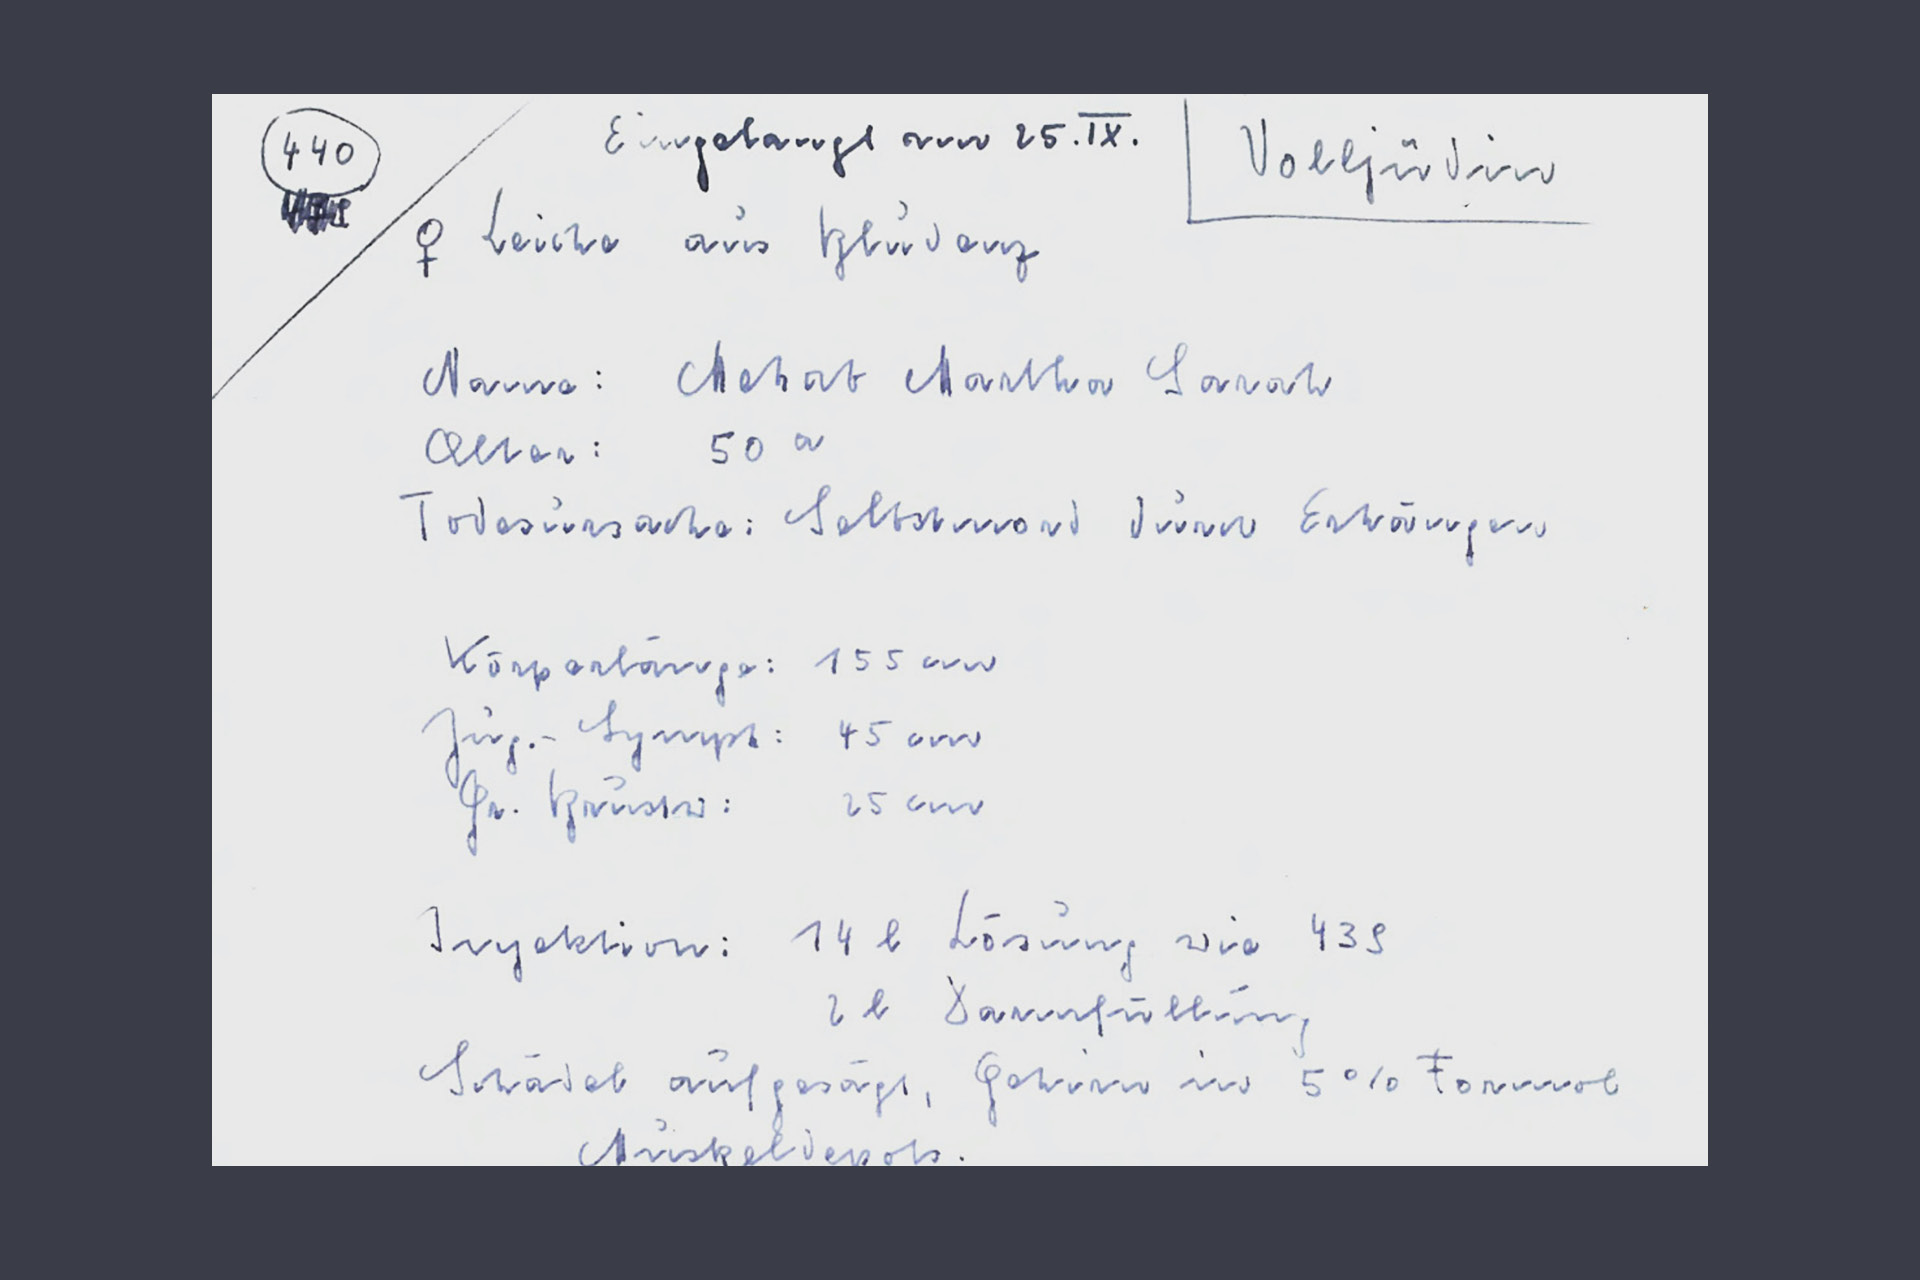 440
Eingelangt am 25.IX.
Volljüdin
♀ Leiche aus Bludenz
Name: Nehab Martha Sarah
Alter: 50 a
Todesursache: Selbstmord durch Erhängen
Körperlänge: 155 cm
Jug.- Symph: 45 cm
Gr. Brustw: 25 cm
Injektion: 14 l Lösung wie 439
2 l Darmfüllung
Schädel aufgesägt, Gehirn in 5% Formol
Muskeldepots.